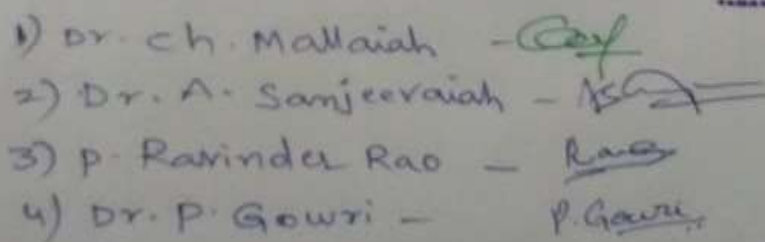 1) Dr. Ch. Mallaiah -
2) Dr. A. Sanjeevaiah -
3) P. Ravinder Rao - Rao
4) Dr. P. Gowri - P. Gowri